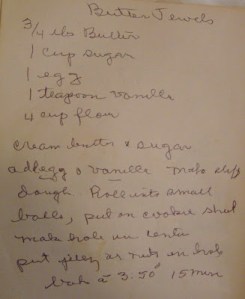 Butter Jewels
3/4 lbs Butter
1 cup sugar
1 egg
1 teaspoon vanilla
4 cup flour
cream butter & sugar
add egg & vanilla make stiff
dough. Roll into small
balls, put on cookie sheet
make hole in center
put jelly or nuts in hole
bake a 3:50° 15 mins